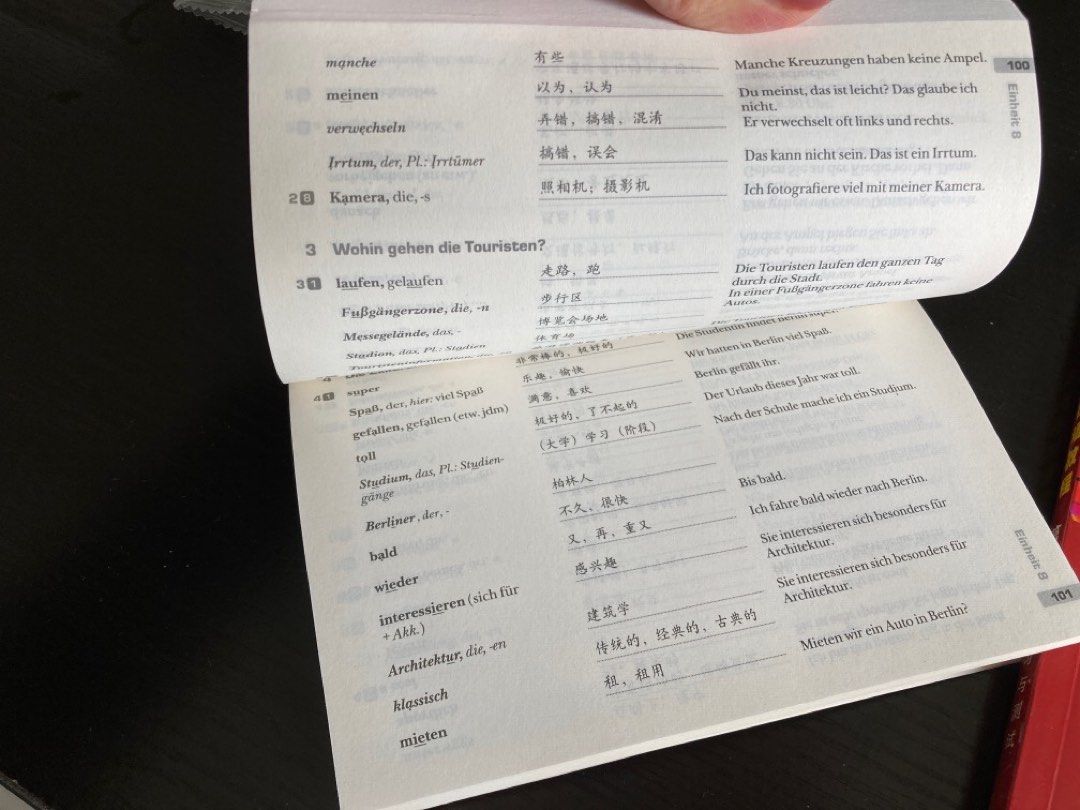 manche 有些 Manche Kreuzungen haben keine Ampel.
100
meinen 以为，认为 Du meinst, das ist leicht? Das glaube ich
nicht.
Einheit 8
verwechseln 弄错，搞错，混淆 Er verwechselt oft links und rechts.
Irrtum, der, Pl.: Irrtümer 搞错，误会 Das kann nicht sein. Das ist ein Irrtum.
2 8 Kamera, die, -s 照相机；摄影机 Ich fotografiere viel mit meiner Kamera.
3 Wohin gehen die Touristen?
3 1 laufen, gelaufen 走路，跑 Die Touristen laufen den ganzen Tag
durch die Stadt.
Fußgängerzone, die, -n 步行区 In einer Fußgängerzone fahren keine
Autos.
Messegelände, das, - 博览会场地
Stadion, das, Pl.: Stadien 体育场
Touristeninformation, die
4 1 super 非常棒的，极好的 Die Studentin findet Berlin super.
Spaß, der, hier: viel Spaß 乐趣，愉快 Wir hatten in Berlin viel Spaß.
gefallen, gefallen (etw. jdm) 满意，喜欢 Berlin gefällt ihr.
toll 极好的，了不起的 Der Urlaub dieses Jahr war toll.
Studium, das, Pl.: Studien-
gänge （大学）学习（阶段） Nach der Schule mache ich ein Studium.
Berliner, der, - 柏林人
bald 不久，很快 Bis bald.
wieder 又，再，重又 Ich fahre bald wieder nach Berlin.
interessieren (sich für
+ Akk.) 感兴趣 Sie interessieren sich besonders für
Architektur.
Architektur, die, -en 建筑学 Sie interessieren sich besonders für
Architektur.
klassisch 传统的，经典的，古典的
mieten 租，租用 Mieten wir ein Auto in Berlin?
Einheit 8
101